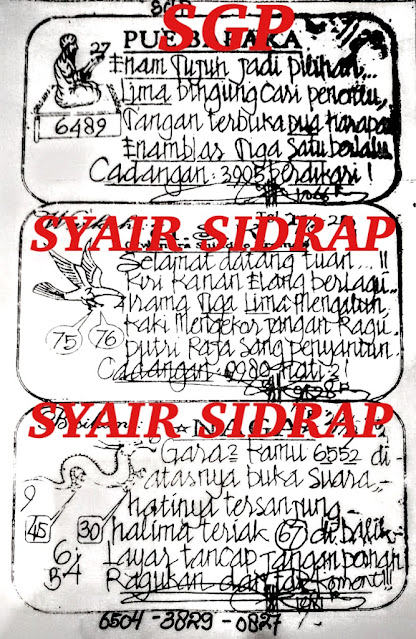 SGP
PUE
27
Enam Tujuh jadi pilihan...
Lima bingung cari penentu,
6489
Tangan terbuka Dua harapan
Enamblas Tiga Satu berlalu
Cadangan : 3905 berdikari !
SYAIR SIDRAP
Selamat datang tuan...!!
Kiri Kanan Elang berlagu
Irama Tiga Lima Mengalun,
75 76
Kaki Mengekor jangan Ragu.
Putri Raja Sang Penyantun.
Cadangan : 0980 Hati2 !
SYAIR SIDRAP
Gara2 Kamu 6552 di-
atasnya buka suara,,
9
hatinya tersanjung-
45 30
halima teriak 67 di balik-
6
Layar tancap jangan
B4
Ragukan daftar Koment!!!
6504-3829-0827